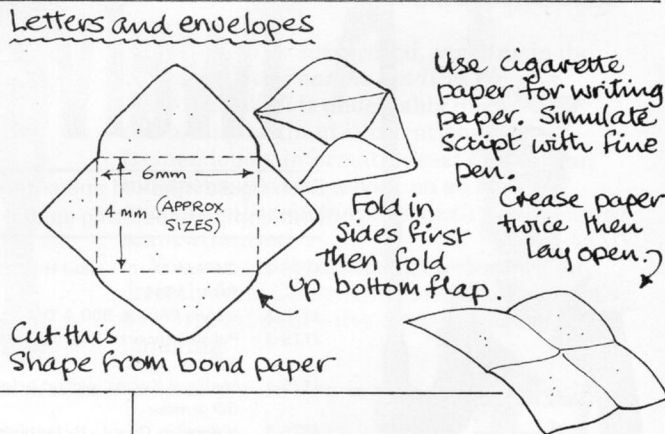 Letters and envelopes
6mm
4mm (APPROX
SIZES)
Use cigarette
paper for writing
paper. Simulate
script with fine
pen.
Fold in
Sides first
then fold
up bottom flap.
Crease paper
twice then
lay open.
Cut this
Shape from bond paper